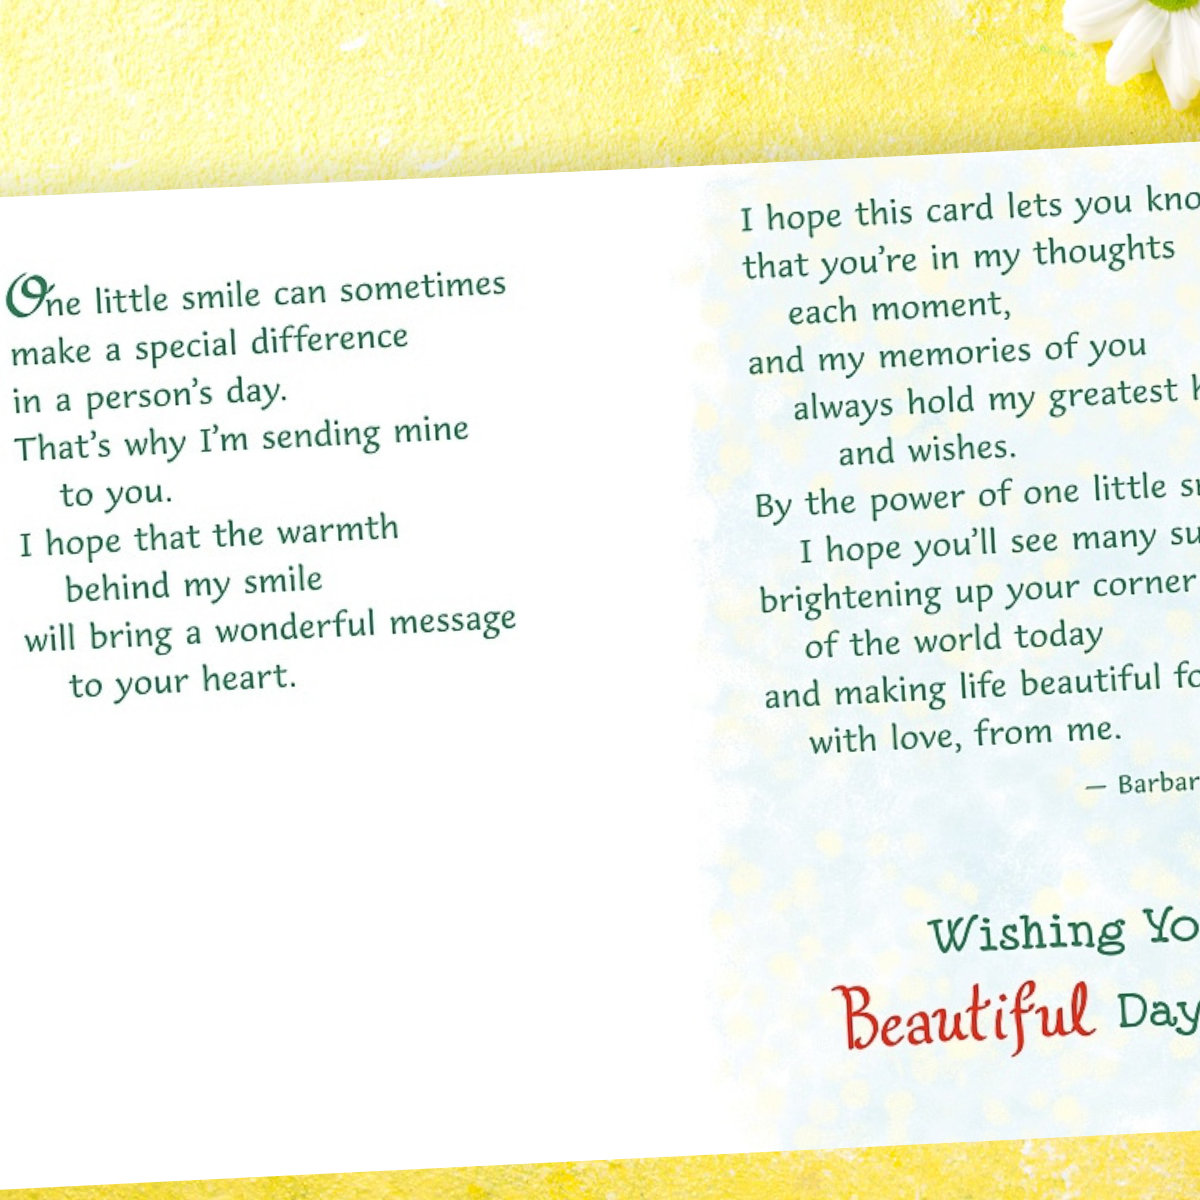 One little smile can sometimes
make a special difference
in a person's day.
That's why I'm sending mine
to you.
I hope that the warmth
behind my smile
will bring a wonderful message
to your heart.
I hope this card lets you
that you're in my thoughts
each moment,
and my memories of you
always hold my greatest
and wishes.
By the power of one little
I hope you'll see many
brightening up your corner
of the world today
and making life beautiful
with love, from me.
—
Wishing
Beautiful Day